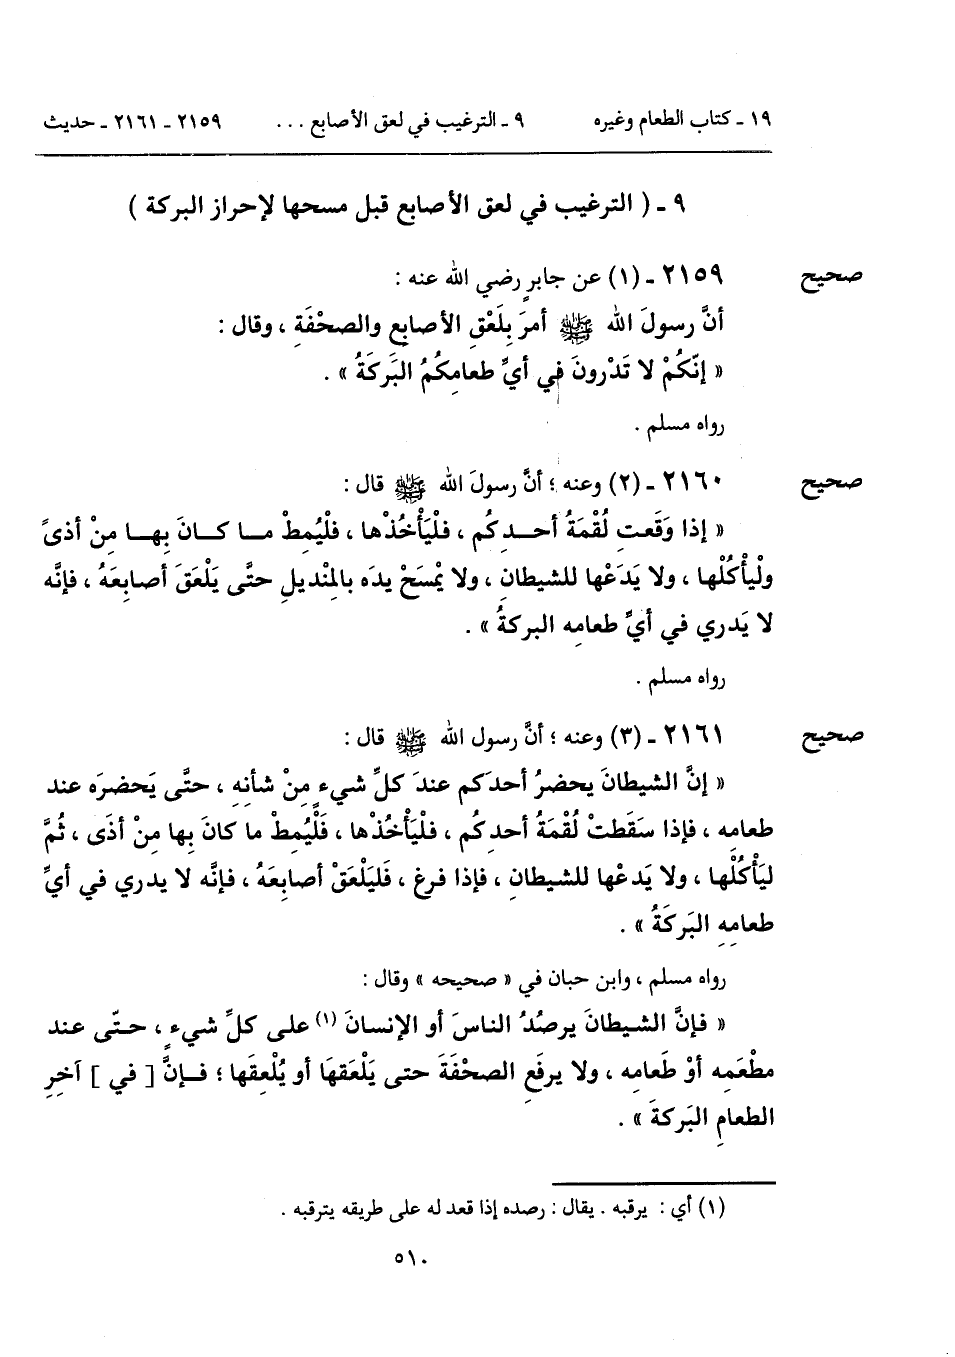 ١٩ ـ كتاب الطعام وغيره ٩ ـ الترغيب في لعق الأصابع . . . ٢١٥٩ ـ ٢١٦١ ـ حديث
٩ ـ ( الترغيب في لعق الأصابع قبل مسحها لإحراز البركة )
صحيح ٢١٥٩ ـ (١) عن جابرٍ رضي الله عنه :
أنَّ رسولَ الله ﷺ أمرَ بِلَعْقِ الأصابعِ والصحْفَةِ ، وقال :
« إنّكُمْ لا تَدْرونَ في أيِّ طعامِكُمُ البَرَكَةُ » .
رواه مسلم .
صحيح ٢١٦٠ ـ (٢) وعنه ؛ أنَّ رسولَ الله ﷺ قال :
« إذا وَقَعت لُقْمَةُ أحـدِكُم ، فلْيَأْخُذْها ، فلْيُمِطْ مـا كـانَ بِهـا مِنْ أذىً
ولْيأْكُلْها ، ولا يَدَعْها للشيطانِ ، ولا يْمسَحْ يدَه بالمِنْديلِ حتَّى يَلْعَقَ أصابِعَهُ ، فإنَّه
لا يَدري في أيِّ طعامِه البركةُ » .
رواه مسلم .
صحيح ٢١٦١ ـ (٣) وعنه ؛ أنَّ رسول الله ﷺ قال :
« إنَّ الشيطانَ يحضرُ أحدَكم عندَ كلِّ شيءٍ مِنْ شأنِهِ ، حتَّى يَحضرَه عند
طعامِه ، فإذا سَقَطتْ لُقْمَةُ أحدِكُم ، فلْيَأْخُذْها ، فَلْيُمِطْ ما كانَ بِها مِنْ أذَى ، ثُمَّ
ليَأْكُلْها ، ولا يَدعْها للشيطانِ ، فإذا فرغ ، فَليَلْعَقْ أصابِعَهُ ، فإنَّه لا يدري في أيِّ
طعامِهِ البَرَكَةُ » .
رواه مسلم ، وابن حبان في « صحيحه » وقال :
« فإنَّ الشيطانَ يرصُدُ الناسَ أو الإنسانَ (١) على كلِّ شيءٍ ، حـتّى عند
مطْعَمِه أوْ طَعامِه ، ولا يرفَعِ الصحْفَةَ حتى يَلْعَقها أو يُلْعِقَها ؛ فـإنَّ [ في ] آخِرِ
الطعامِ البَركةَ » .
(١) أي : يرقبه . يقال : رصده إذا قعد له على طريقه يترقبه .
٥١٠